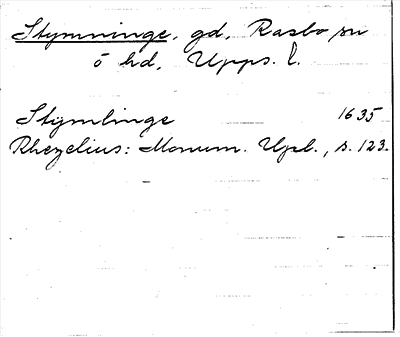 Stymninge, gd, Rasbo sn
ö hd, Upps. l.
Stÿmlinge 1635
Rhezelius: Monum. Upl., s. 123.